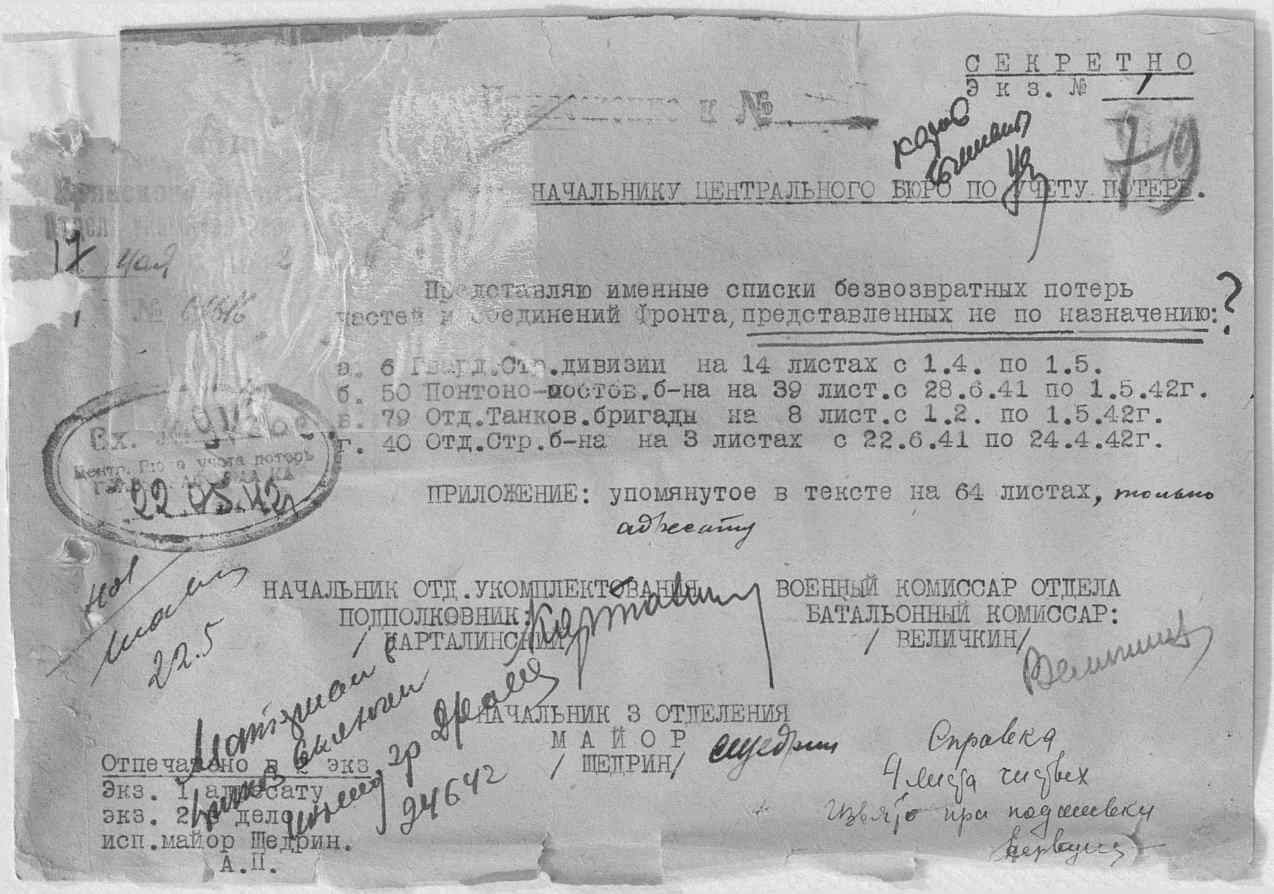 СЕКРЕТНО
Экз. № 1
к №
79
НАЧАЛЬНИКУ ЦЕНТРАЛЬНОГО БЮРО ПО УЧЕТУ ПОТЕРЬ.
17 мая
№
Представляю именные списки безвозвратных потерь
частей и соединений фронта, представленных не по назначению: ?
а. 6 Гвард.Стр.дивизии на 14 листах с 1.4. по 1.5.
б. 50 Понтоно-мостов.б-на на 39 лист.с 28.6.41 по 1.5.42г.
в. 79 Отд.Танков.бригады на 8 лист.с 1.2. по 1.5.42г.
г. 40 Отд.Стр.б-на на 3 листах с 22.6.41 по 24.4.42г.
Вх. №
Центр. Бюро учета потерь
22.05.42
ПРИЛОЖЕНИЕ: упомянутое в тексте на 64 листах, только
адресату
22.5
НАЧАЛЬНИК ОТД.УКОМПЛЕКТОВАНИЯ
ПОДПОЛКОВНИК:
/ КАРТАЛИНСКИЙ/
ВОЕННЫЙ КОМИССАР ОТДЕЛА
БАТАЛЬОННЫЙ КОМИССАР:
/ ВЕЛИЧКИН/
НАЧАЛЬНИК 3 ОТДЕЛЕНИЯ
МАЙОР
/ ЩЕДРИН/ Щедрин
Отпечатано в 2 экз
Экз. 1 адресату
экз. 2 в дело
исп.майор Щедрин.
А.П.
24642
Справка
4 листа чистых
Изъято при подшивке